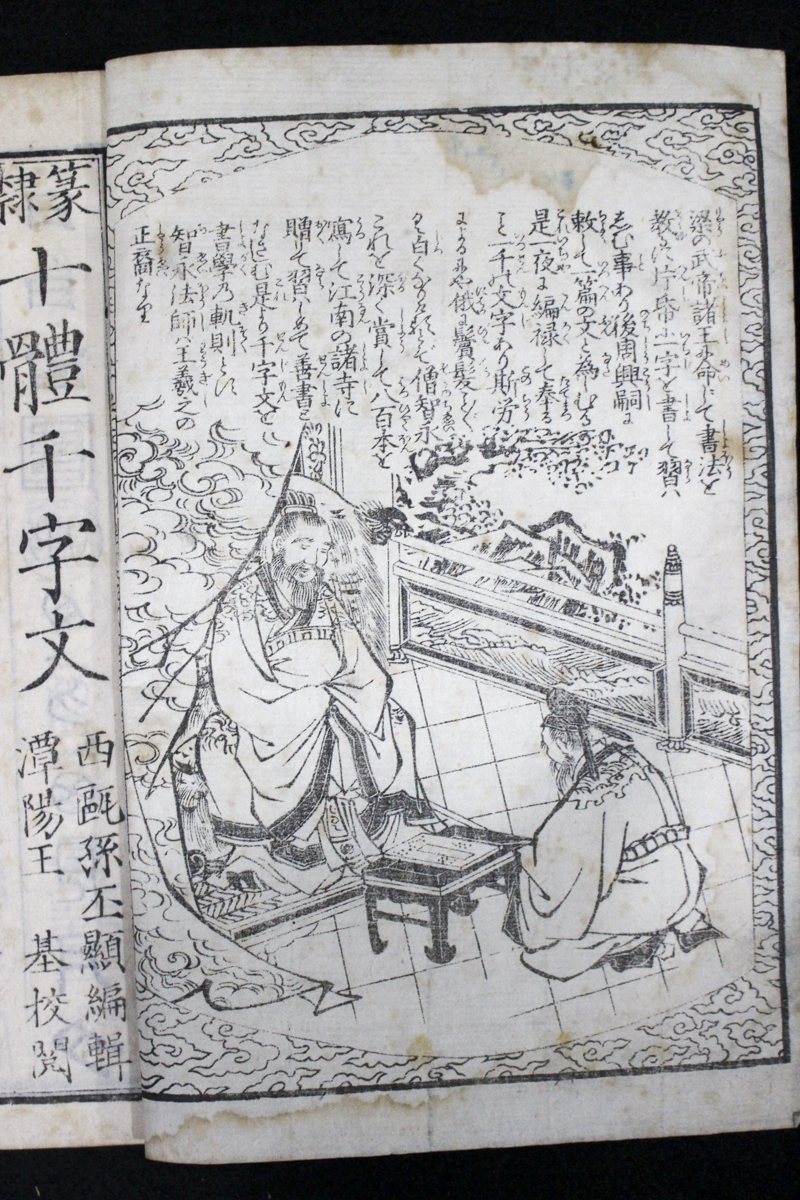 梁の武帝諸王に命じて書法を
教ゆ片帋に一字を書して習ハ
しむ事あり後周興嗣に
敕して一篇の文と為しむる
是一夜に編禄して奉る
こと一千の文字あり斯労
によるにや俄に鬢髪こと〴〵
く白くなる
僧智永
これを深く賞して八百本を
寫して江南の諸寺に
贈て習ハしめて善書と
なさしむ是より千字文を
書學の軌則とす
智永法師ハ王羲之の
正裔なり
篆隷
十體千字文
西甌孫丕顯編輯
潭陽王 基校閲